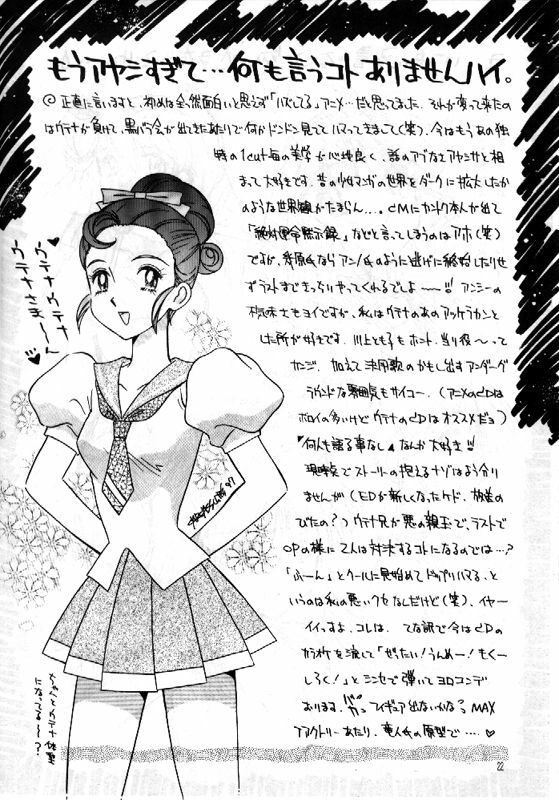 もうアヤシすぎて…何も言うコトありませんハイ。
◎正直に言いますと、初めは全然面白いと思えず「ハズしてる」アニメ…だと思ってました。それが変って来たの
はウテナが負けて、黒バラ会が出てきたあたりで何かドンドン見ててハマってきまして(笑)、今はもうあの独
特の1cut毎の美学が心地良く、話のアブなさアヤシサと相
まって大好きです。昔の少女マンガの世界をダークに拡大したか
のような世界観がたまらん…。CMにカントク本人が出て
「絶対運命黙示録」などと言ってしまうのはアホ(笑)
ですが、幾原氏なら アンノ氏のように逃げに終始したりせ
ずラストまできっちりやってくれるでしよ〜〜!! アンシーの
不気味さもヨイですが、私はウテナのあのアッケラカンと
した所が好きです。川上とも子も ホント、当り役〜って
カンジ。加えて決闘歌のかもし出すアンダーグ
ラウンドな雰囲気もサイコー。(アニメのCDは
ボロイの多いけど ウテナのCDはオススメだョ)
〝何人も語る事なし〟なんか大好き!!
現時点でストーリーの抱えるナゾはよう分り
ませんが(EDが新しくなったケド、放送の
びたの?)ウテナ兄が悪の親玉で、ラストで
OPの様に2人は対決するコトになるのでは…?
「ふーん」とクールに見始めてドップリハマる、と
いうのは私の悪いクセなんだけど(笑)、イヤー
イイっすよ、コレは。 てな訳で今はCDの
カラオケを流して「ぜったい!うんめー!もくー
しろく!」とシンセで弾いてヨロコンデ
おります。 フィギュア出ないかな? MAX
ファクトリーあたり、竜人氏の原型で……♥
ウテナ ウテナ
さま〜〜ん
22